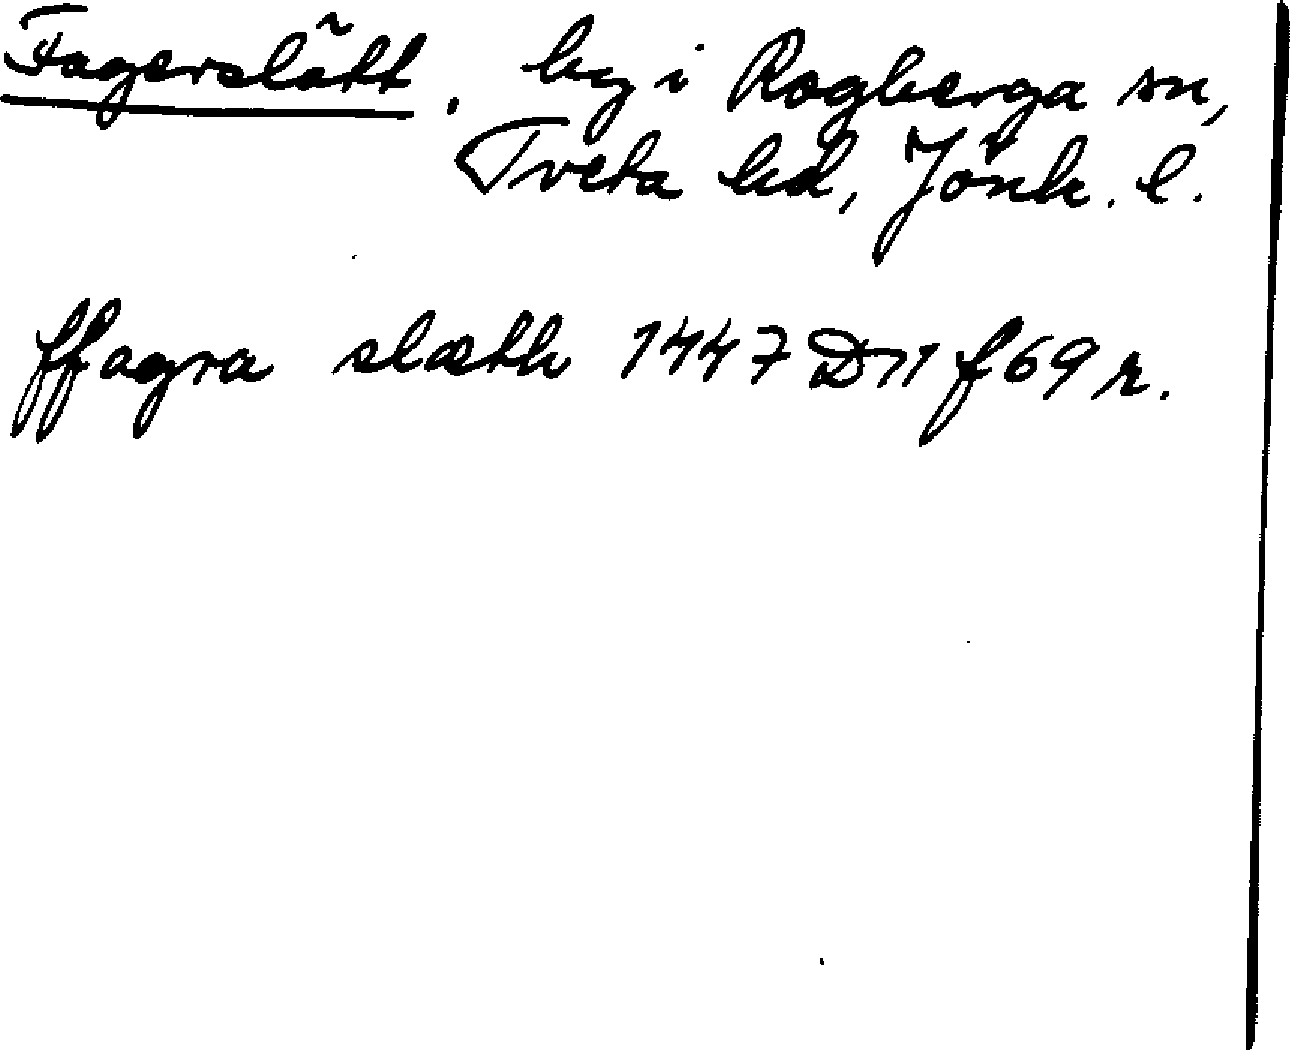 Fagerslätt, by i Rogberga sn,
Tveta hd, Jönk. l.
ffagra slæth 1447 D 11 f 69 r.